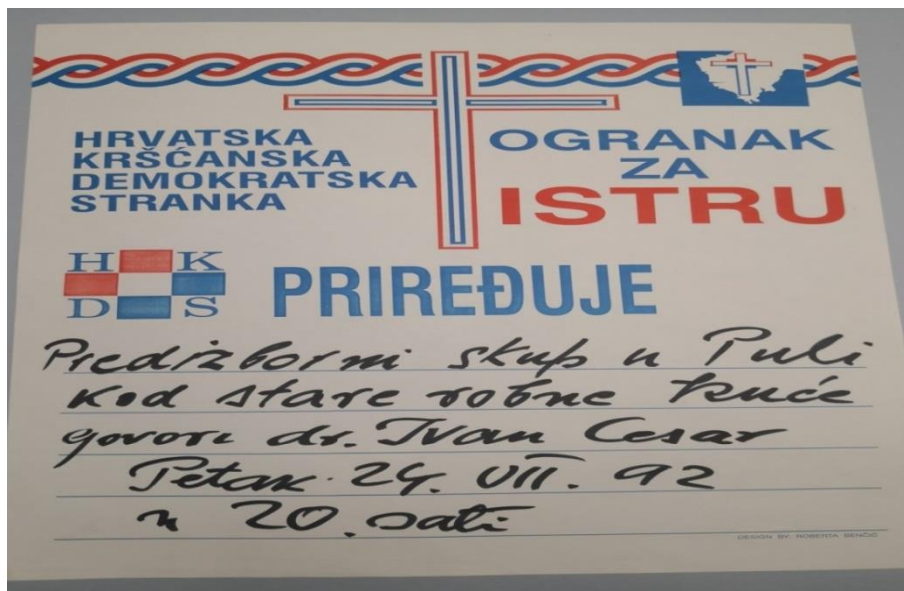 HRVATSKA
KRŠĆANSKA
DEMOKRATSKA
STRANKA
OGRANAK
ZA
ISTRU
H K
D S
PRIREĐUJE
Predizborni skup u Puli
kod stare robne kuće
govori dr. Ivan Cesar
Petak 24. VII. 92
u 20 sati
DESIGN BY: ROBERTA BENČIĆ